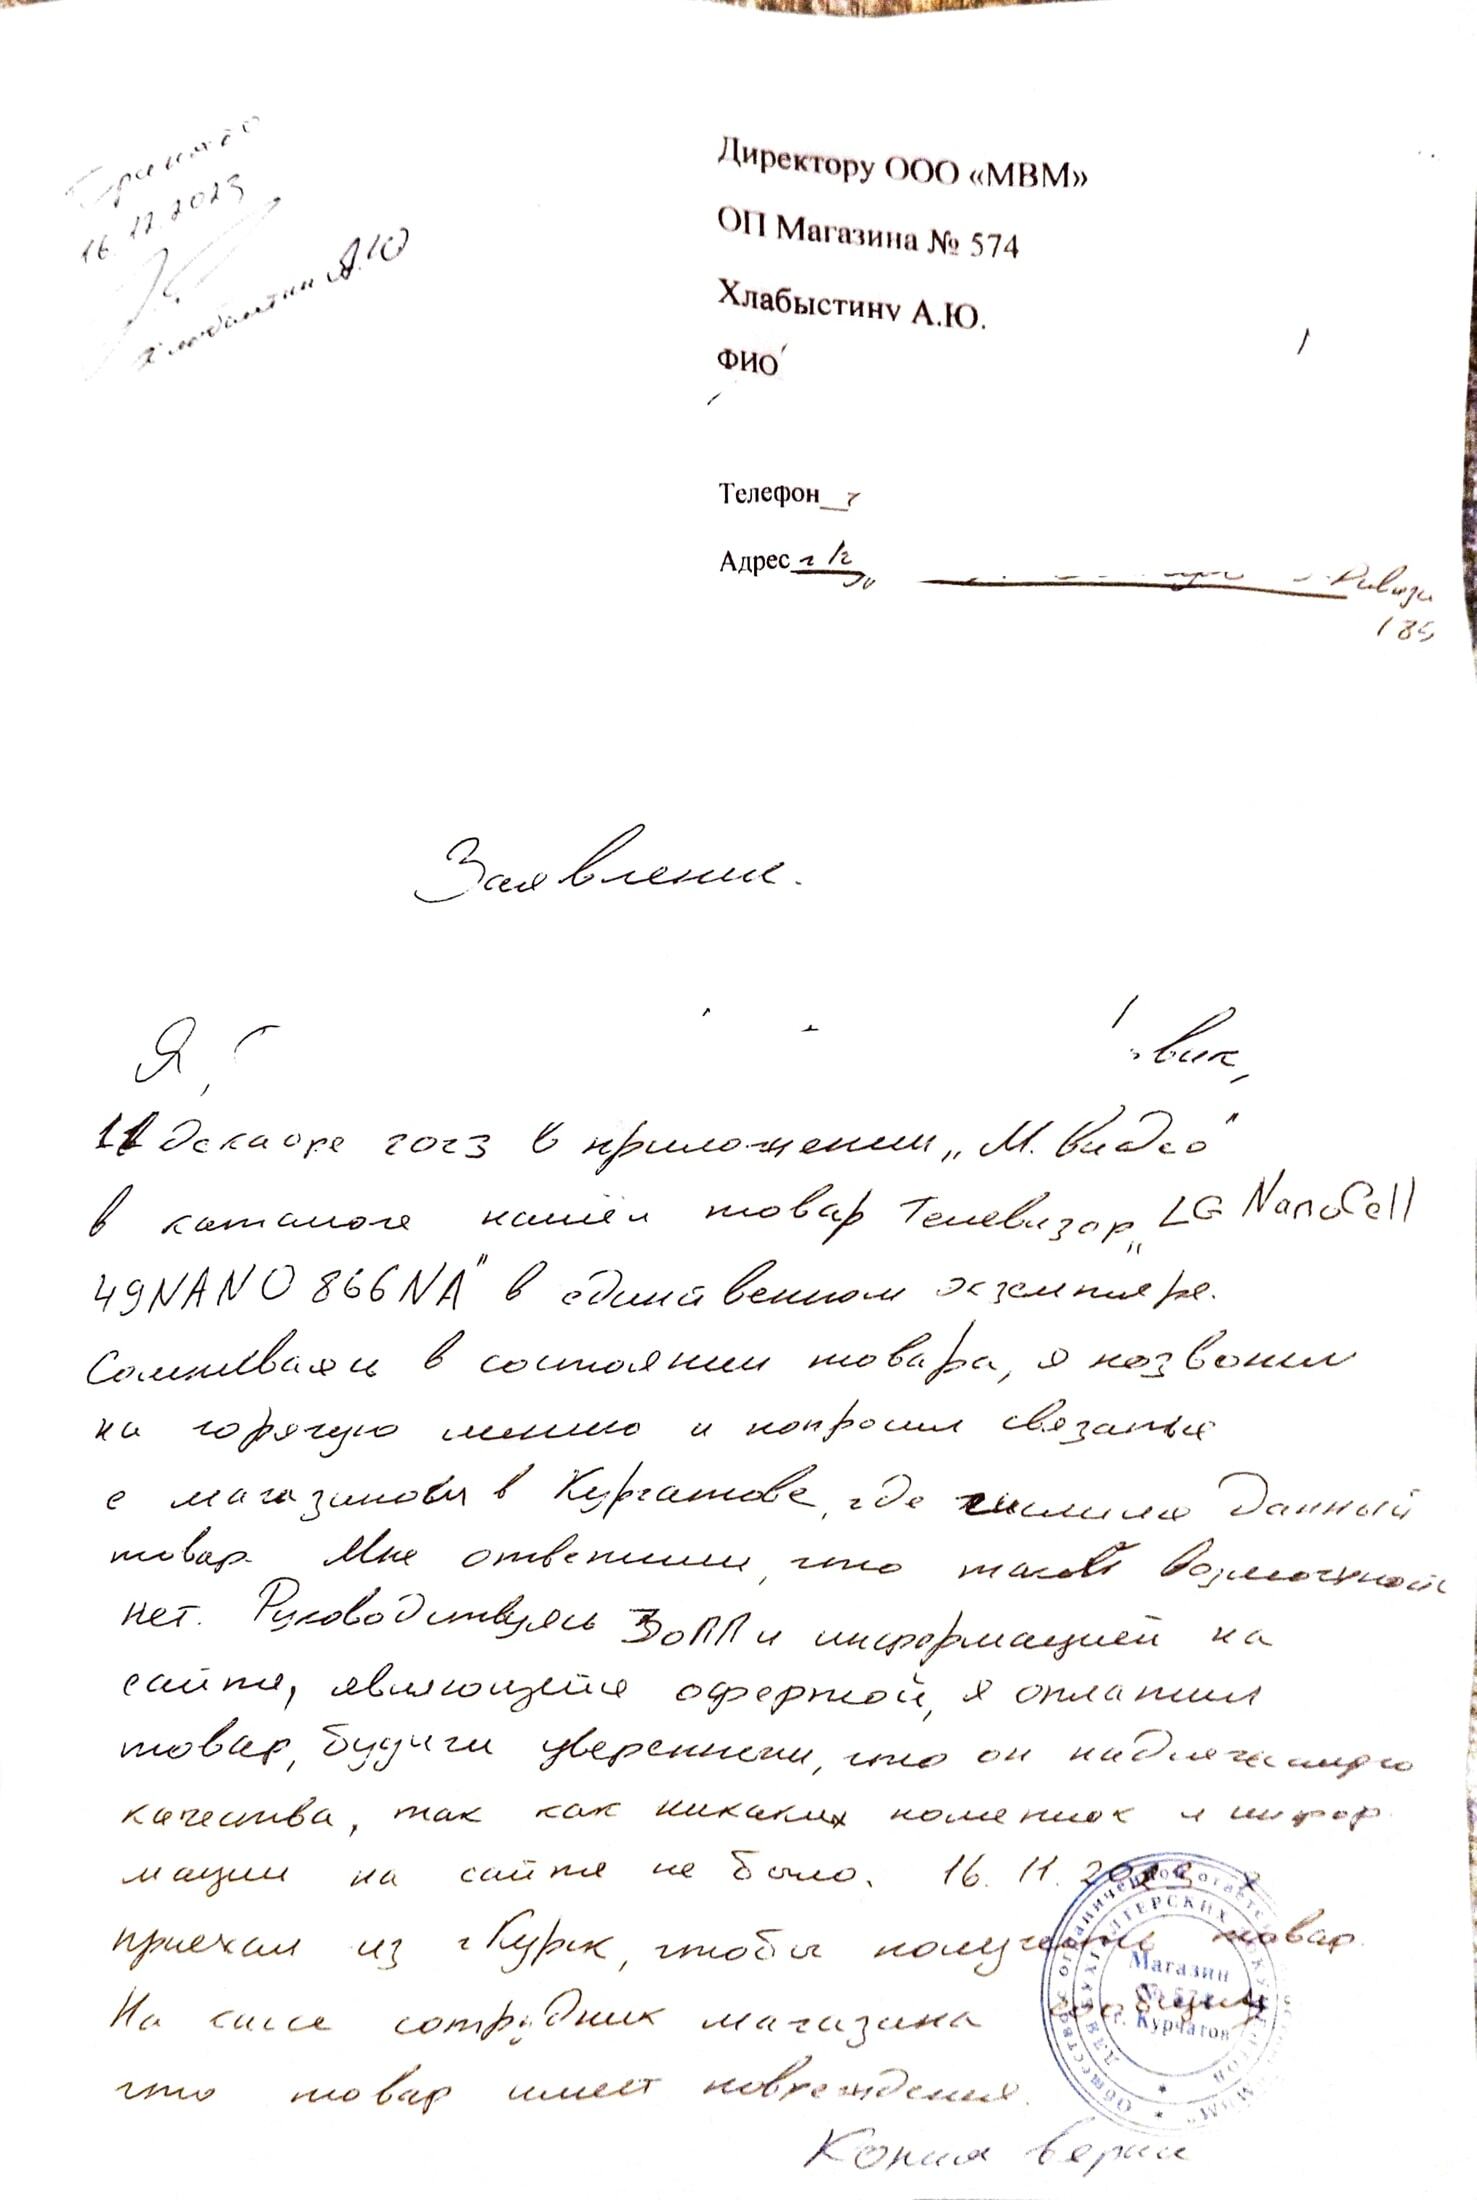 Принято
16.12.2023
Хлабыстин А.Ю
Директору ООО «МВМ»
ОП Магазина № 574
Хлабыстину А.Ю.
ФИО
Телефон
Адрес г К
185
Заявление.
Я,
вич,
11 декабре 2023 в приложении „М. Видео"
в каталоге нашёл товар Телевизор „LG NanoCell
49NANO866NA" в единственном экземпляре.
Сомневаясь в состоянии товара, я позвонил
на горячую линию и попросил связаться
с магазином в Курчатове, где числился данный
товар. Мне ответили, что такой возможности
нет. Руководствуясь ЗоПП и информацией на
сайте, являющейся офертой, я оплатил
товар, будучи уверенным, что он надлежащего
качества, так как никаких пометок и инфор
мации на сайте не было. 16. 11. я
приехал из г Курск, чтобы получить товар.
На кассе сотрудник магазина сообщил,
что товар имеет повреждения.
Магазин
№ 574
г. Курчатов
Копия верна